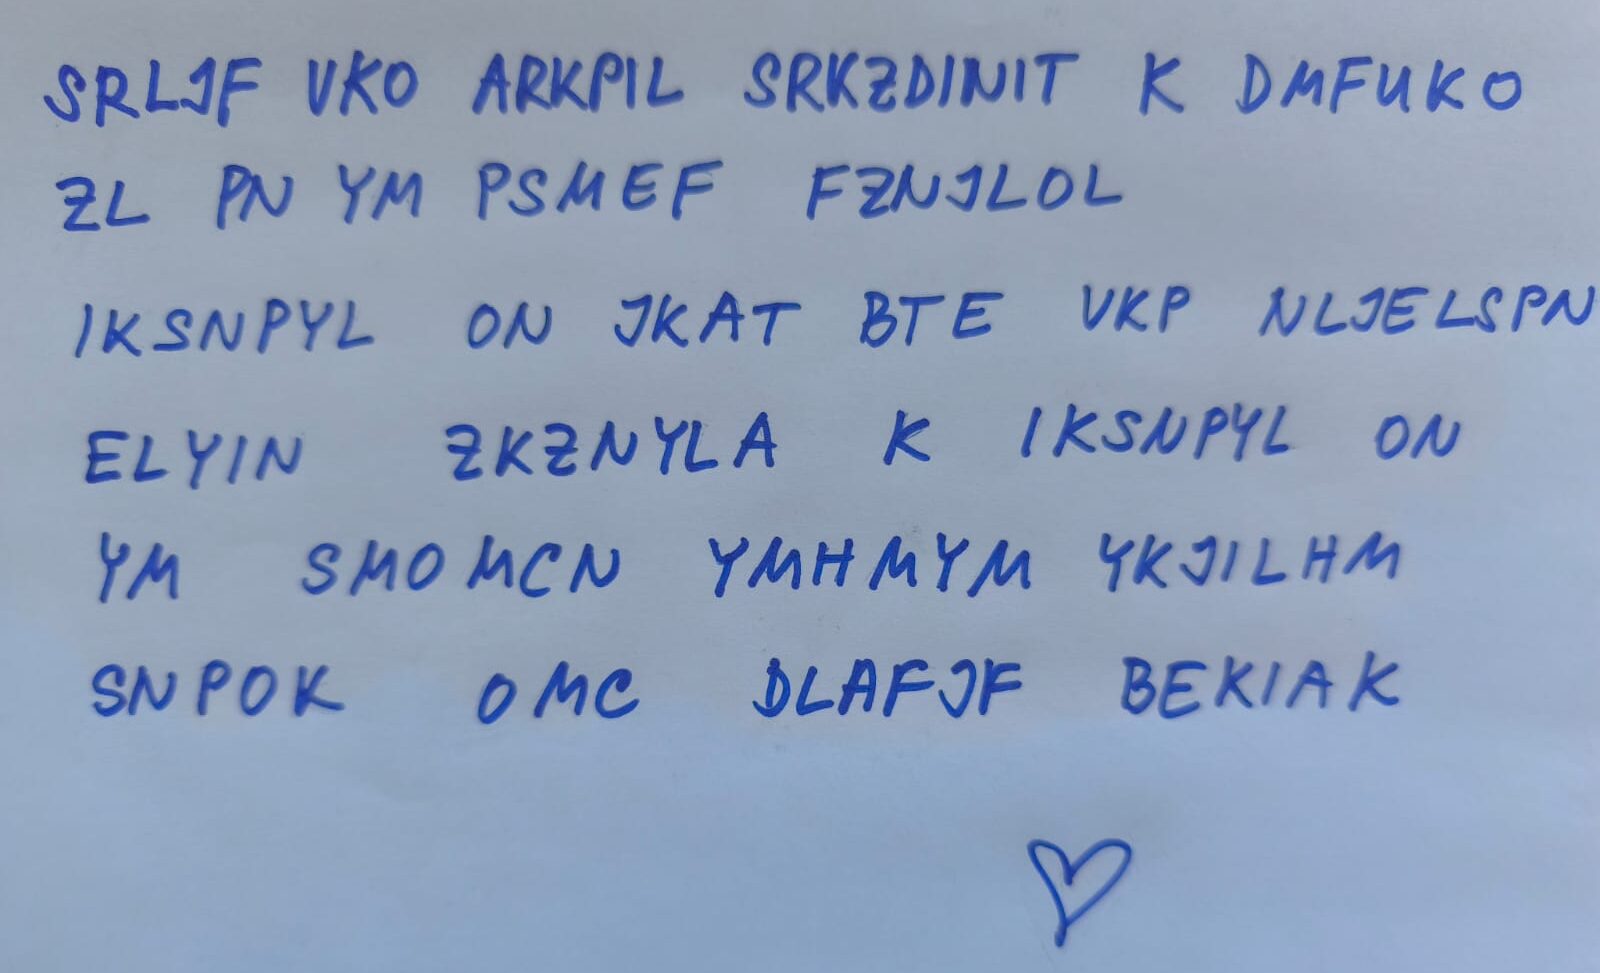 SRLJF VKO ARKPIL SRKZDINIT K DMFUKO
ZL PN YM PSMEF FZNJLOL
IKSNPYL ON JKAT BTE VKP NLJELSPN
ELYIN ZKZNYLA K IKSNPYL ON
YM SMOMCN YMHMYM YKJILHM
SNPOK OMC DLAFJF BEKIAK